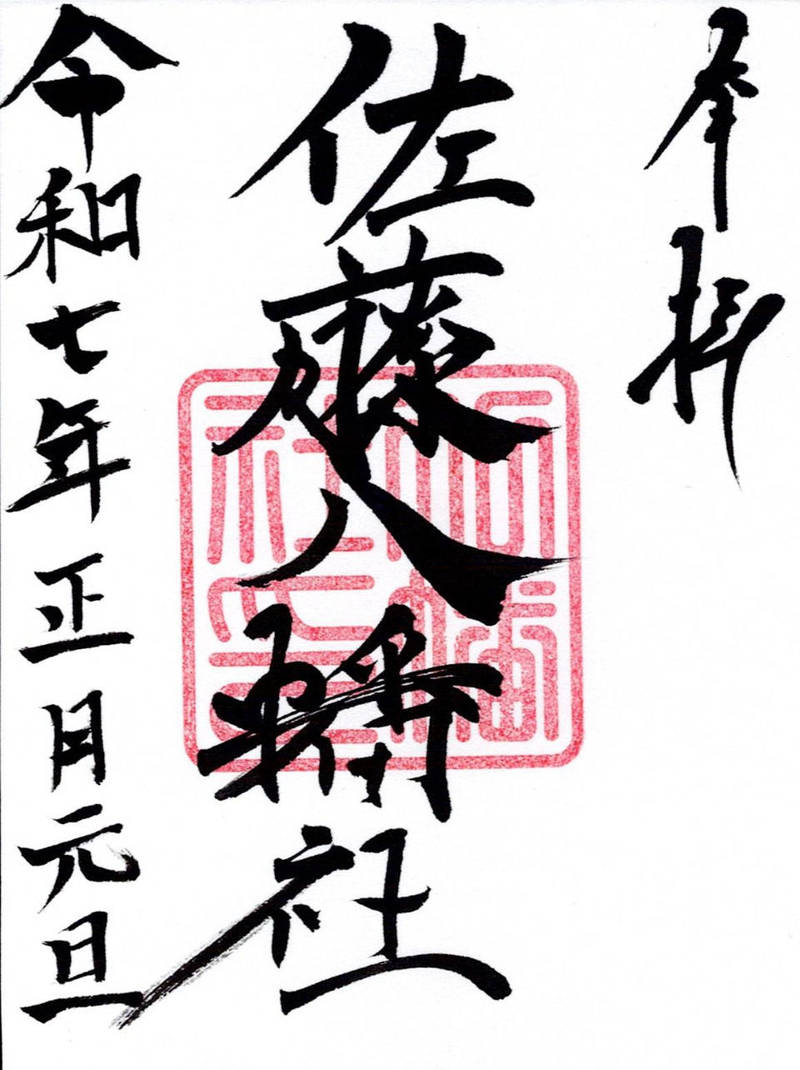 奉拝
佐藤八幡社
令和七年正月元旦